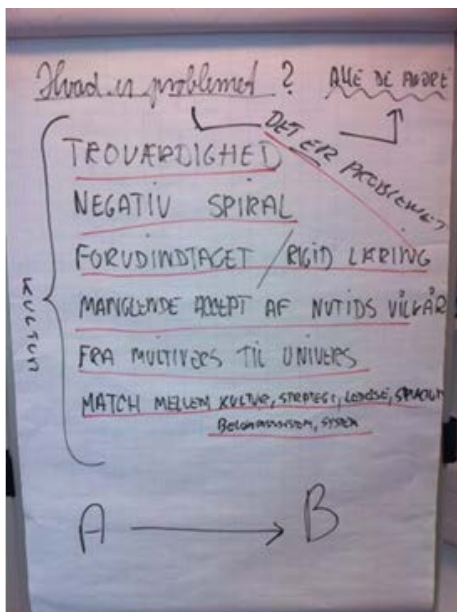 Hvad er problemet ? ALLE DE ANDRE
DET ER PROBLEMET
KULTUR
TROVÆRDIGHED
NEGATIV SPIRAL
FORUDINDTAGET / RIGID LÆRING
MANGLENDE ACCEPT AF NUTIDS VILKÅR
FRA MULTIVERS TIL UNIVERS
MATCH MELLEM KULTUR, STRATEGI, LEDELSE,
SYSTEM
A → B